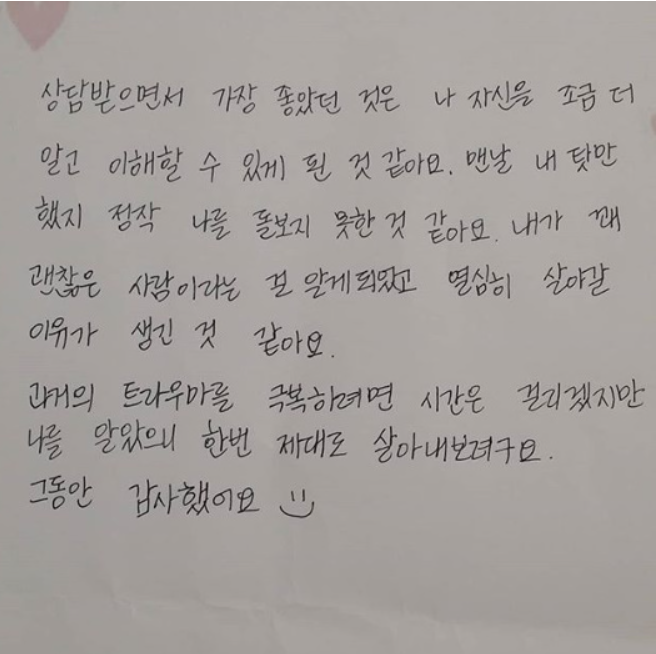 상담받으면서 가장 좋았던 것은 나 자신을 조금 더
알고 이해할 수 있게 된 것 같아요. 맨날 내 탓만
했지 정작 나를 돌보지 못한 것 같아요. 내가 꽤
괜찮은 사람이라는 걸 알게되었고 열심히 살아갈
이유가 생긴 것 같아요.
과거의 트라우마를 극복하려면 시간은 걸리겠지만
나를 알았으니 한번 제대로 살아내보려구요.
그동안 감사했어요